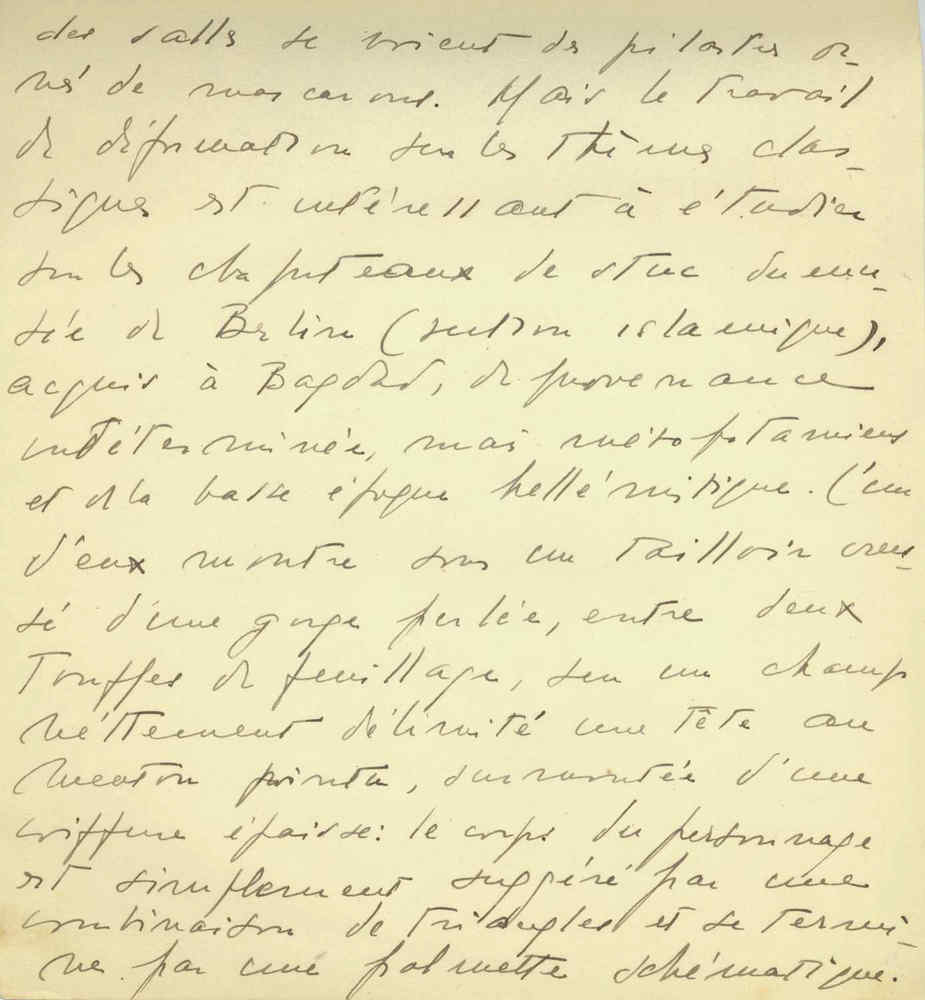 des salles se voient des pilastres or-
nés de mascarons. Mais le travail
de déformation sur les thèmes clas-
siques est intéressant à étudier
sur les chapiteaux de stuc du mu-
sée de Berlin (section islamique),
acquis à Bagdad, de provenance
indéterminée, mais mésopotamiens
et de la basse époque hellénistique. L'un
d'eux montre sous un tailloir creu-
sé d'une gorge perlée, entre deux
touffes de feuillage, sur un champ
nettement délimité une tête au
menton pointu, surmontée d'une
coiffure épaisse: le corps du personnage
est simplement suggéré par une
combinaison de triangles et se termi-
ne par une palmette schématique.